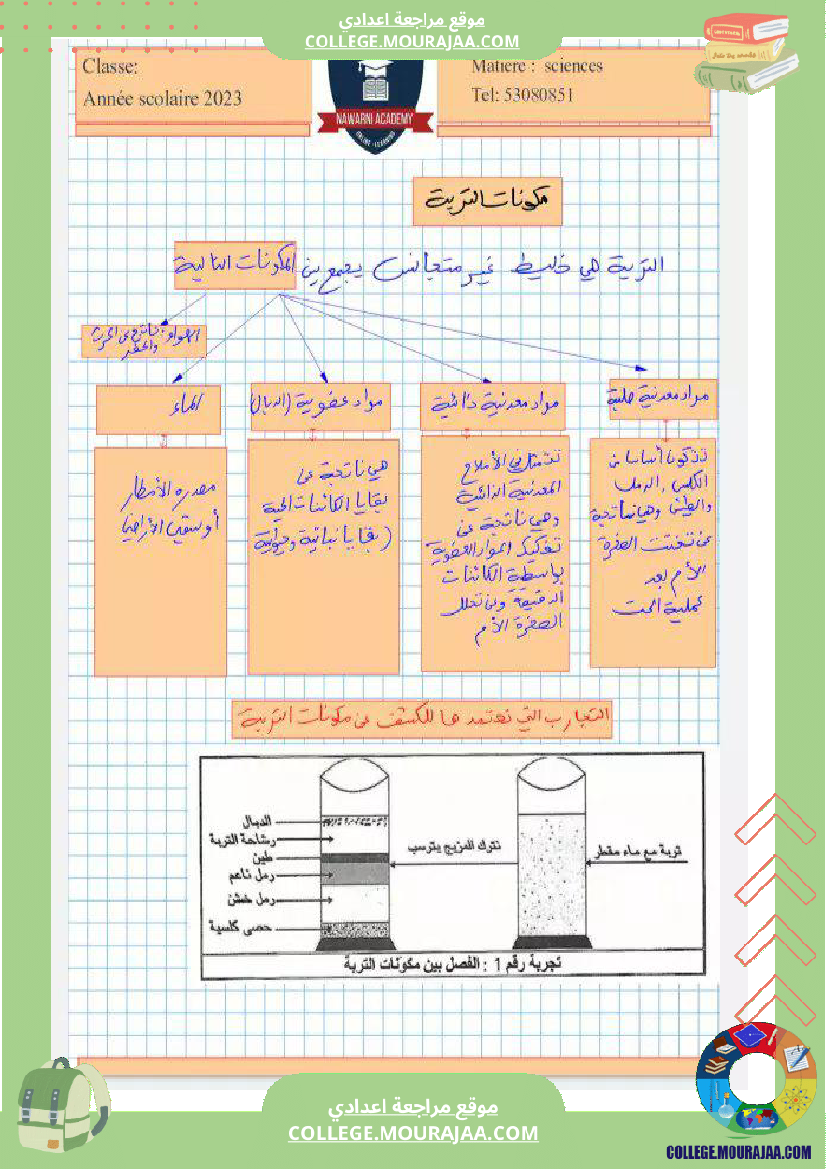 موقع مراجعة اعدادي
COLLEGE.MOURAJAA.COM
Classe:
Année scolaire 2023
NAWARNI ACADEMY
ONLINE LEARNING
Matière : sciences
Tel: 53080851
مكونات التربة
التربة هي خليط غير متجانس يجمع بين المكونات التالية
الهواء: ناتج عن الحرث
والحفر
الماء
مواد عضوية (الدبال)
مواد معدنية ذائبة
مواد معدنية صلبة
مصدره الأمطار
أو سقي الأراضي
هي ناتجة عن
بقايا الكائنات الحية
(بقايا نباتية وحيوانية
تتمثل في الأملاح
المعدنية الذائبة
وهي ناتجة عن
تفكيك المواد العضوية
بواسطة الكائنات
الدقيقة وعن تحلل
الصخرة الأم
تتكون أساسا من
الكلس، الرمل
والطين وهي ناتجة
عن تفتت الصخرة
الأم بعد
عملية الحت
التجارب التي نعتمدها للكشف عن مكونات التربة
الدبال
رشاحة التربة
طين
رمل ناعم
رمل خشن
حصى كلسية
نترك المزيج يترسب
تربة مع ماء مقطر
تجربة رقم 1 : الفصل بين مكونات التربة
موقع مراجعة اعدادي
COLLEGE.MOURAJAA.COM
COLLEGE.MOURAJAA.COM